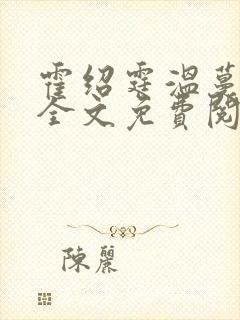 霍绍霆温蔓
全文免費閱
陳麗